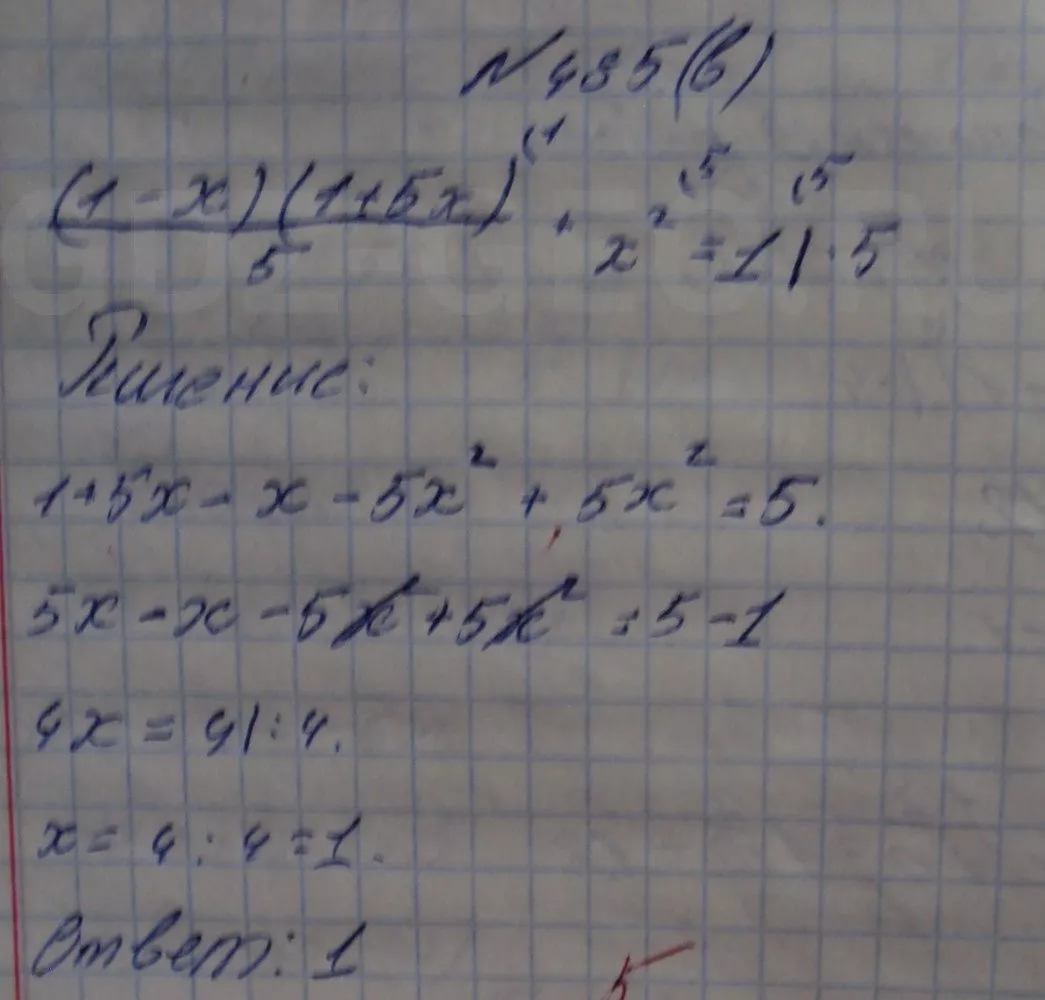 N 495(в)
(1-x)(1+5x)⁽¹
5 + x² ⁽⁵ = 1 ⁽⁵ | · 5
Решение:
1+5x - x - 5x² + 5x² = 5.
5x - x - 5x² + 5x² = 5 - 1
4x = 4 | : 4.
x = 4 : 4 = 1.
Ответ: 1
5